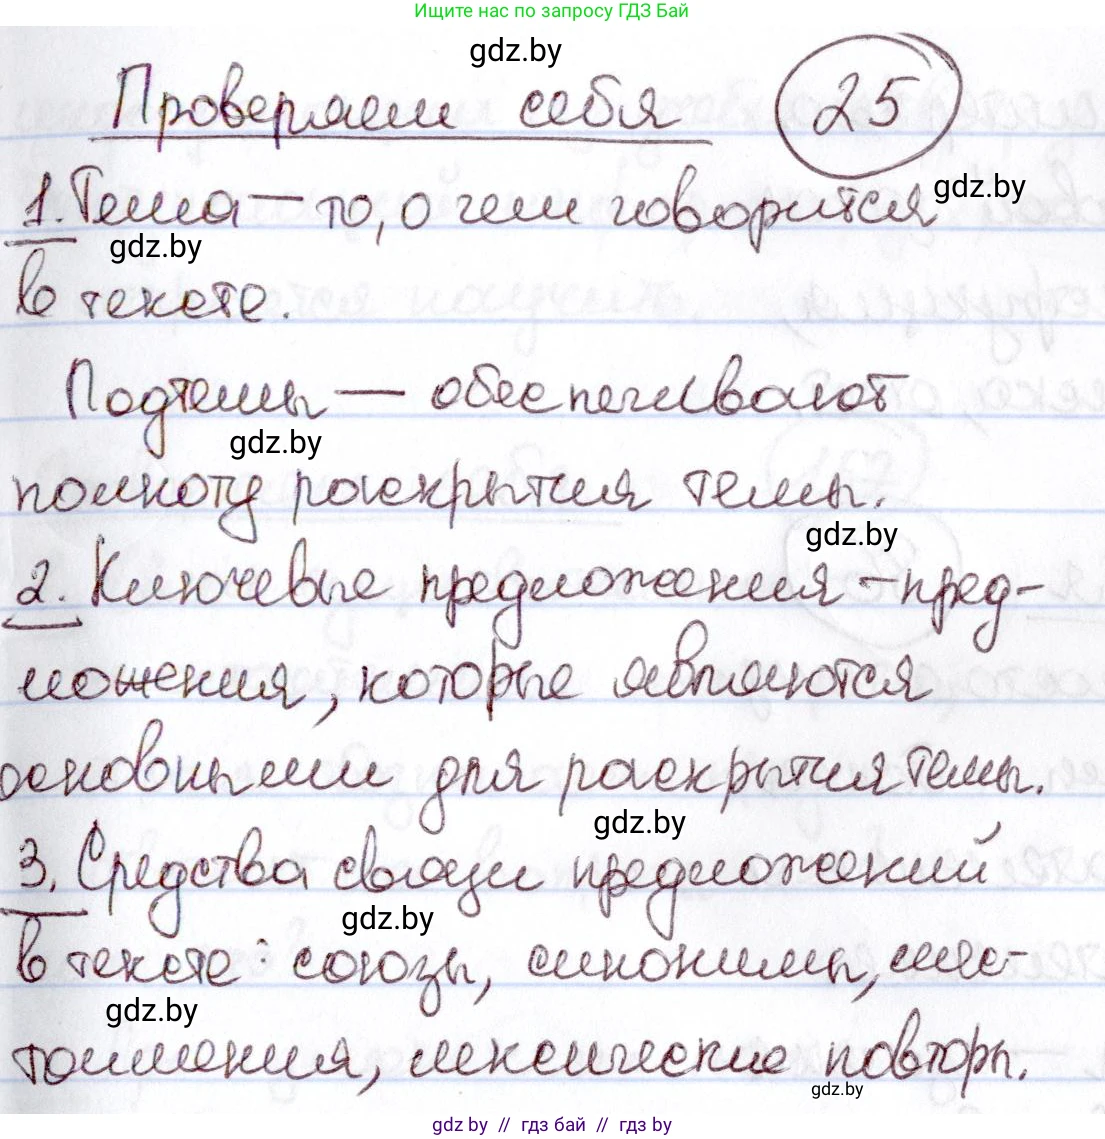 Ищите нас по запросу ГДЗ Бай
gdz.by
Проверяем себя 25
gdz.by
1. Тема — то, о чем говорится
gdz.by
в тексте.
Подтемы — обеспечивают
gdz.by
полноту раскрытия темы.
gdz.by
2. Ключевые предложения – пред-
ложения, которые являются
основными для раскрытия темы.
gdz.by
3. Средства связи предложений
gdz.by
в тексте: союзы, синонимы, мес-
gdz.by
тоимения, лексические повторы.
gdz.by
gdz.by // гдз бай // гдз by